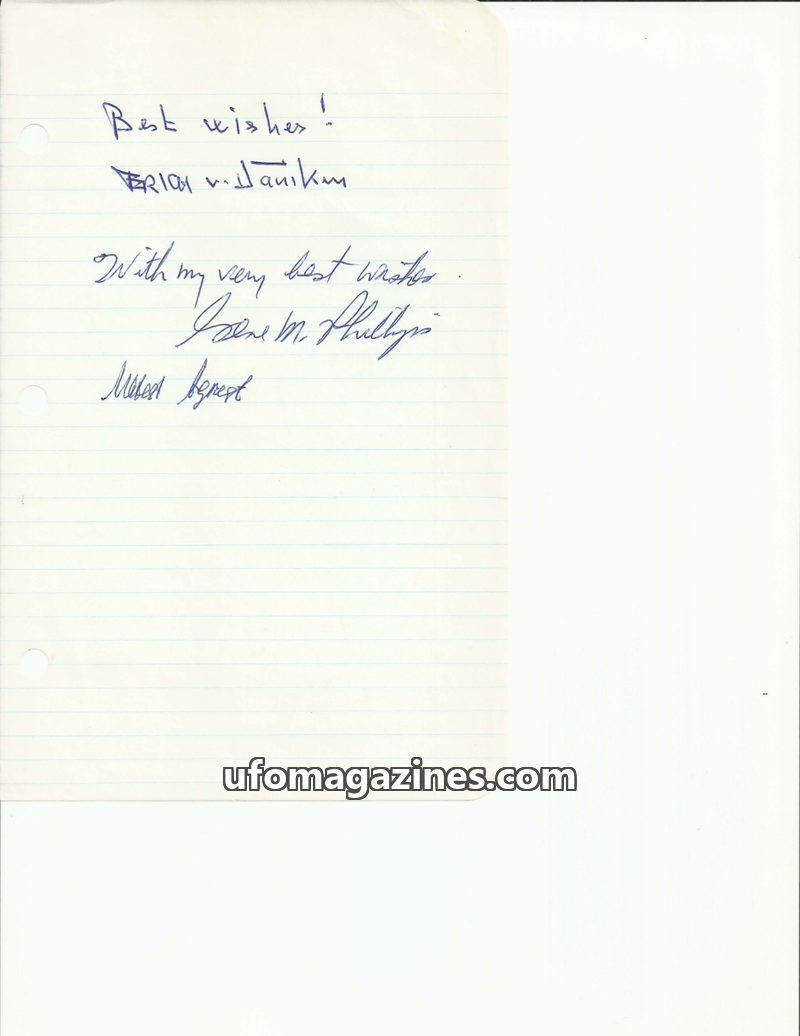 Best wishes!
ERICH v. Däniken
With my very best wishes
Gene M. Phillips
Matest Agrest
ufomagazines.com